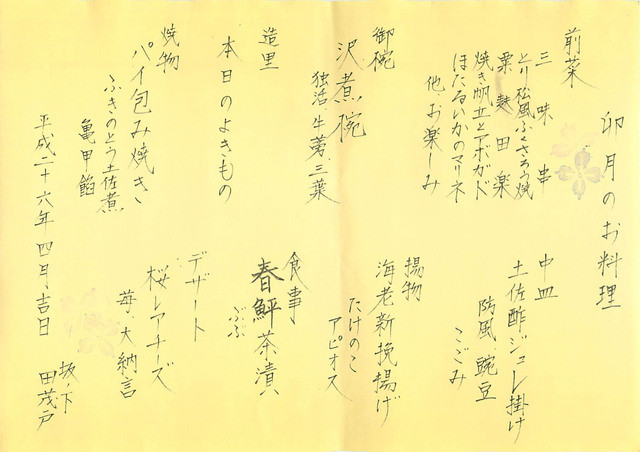 卯月のお料理
前菜
三味串
とり松風ふくさ焼
粟麩田楽
焼き帆立とアボガド
ほたるいかのマリネ
他お楽しみ
御椀
沢煮椀
独活 牛蒡 三葉
造里
本日のよきもの
焼物
パイ包み焼き
ふきのとう土佐煮
亀甲餡
中皿
土佐酢ジュレ掛け
防風 豌豆
こごみ
揚物
海老新挽揚げ
たけのこ
アピオス
食事
春鮃茶漬
ぶぶ
デザート
桜レアチーズ
苺・大納言
平成二十六年四月吉日
坂ノ下
田茂戸